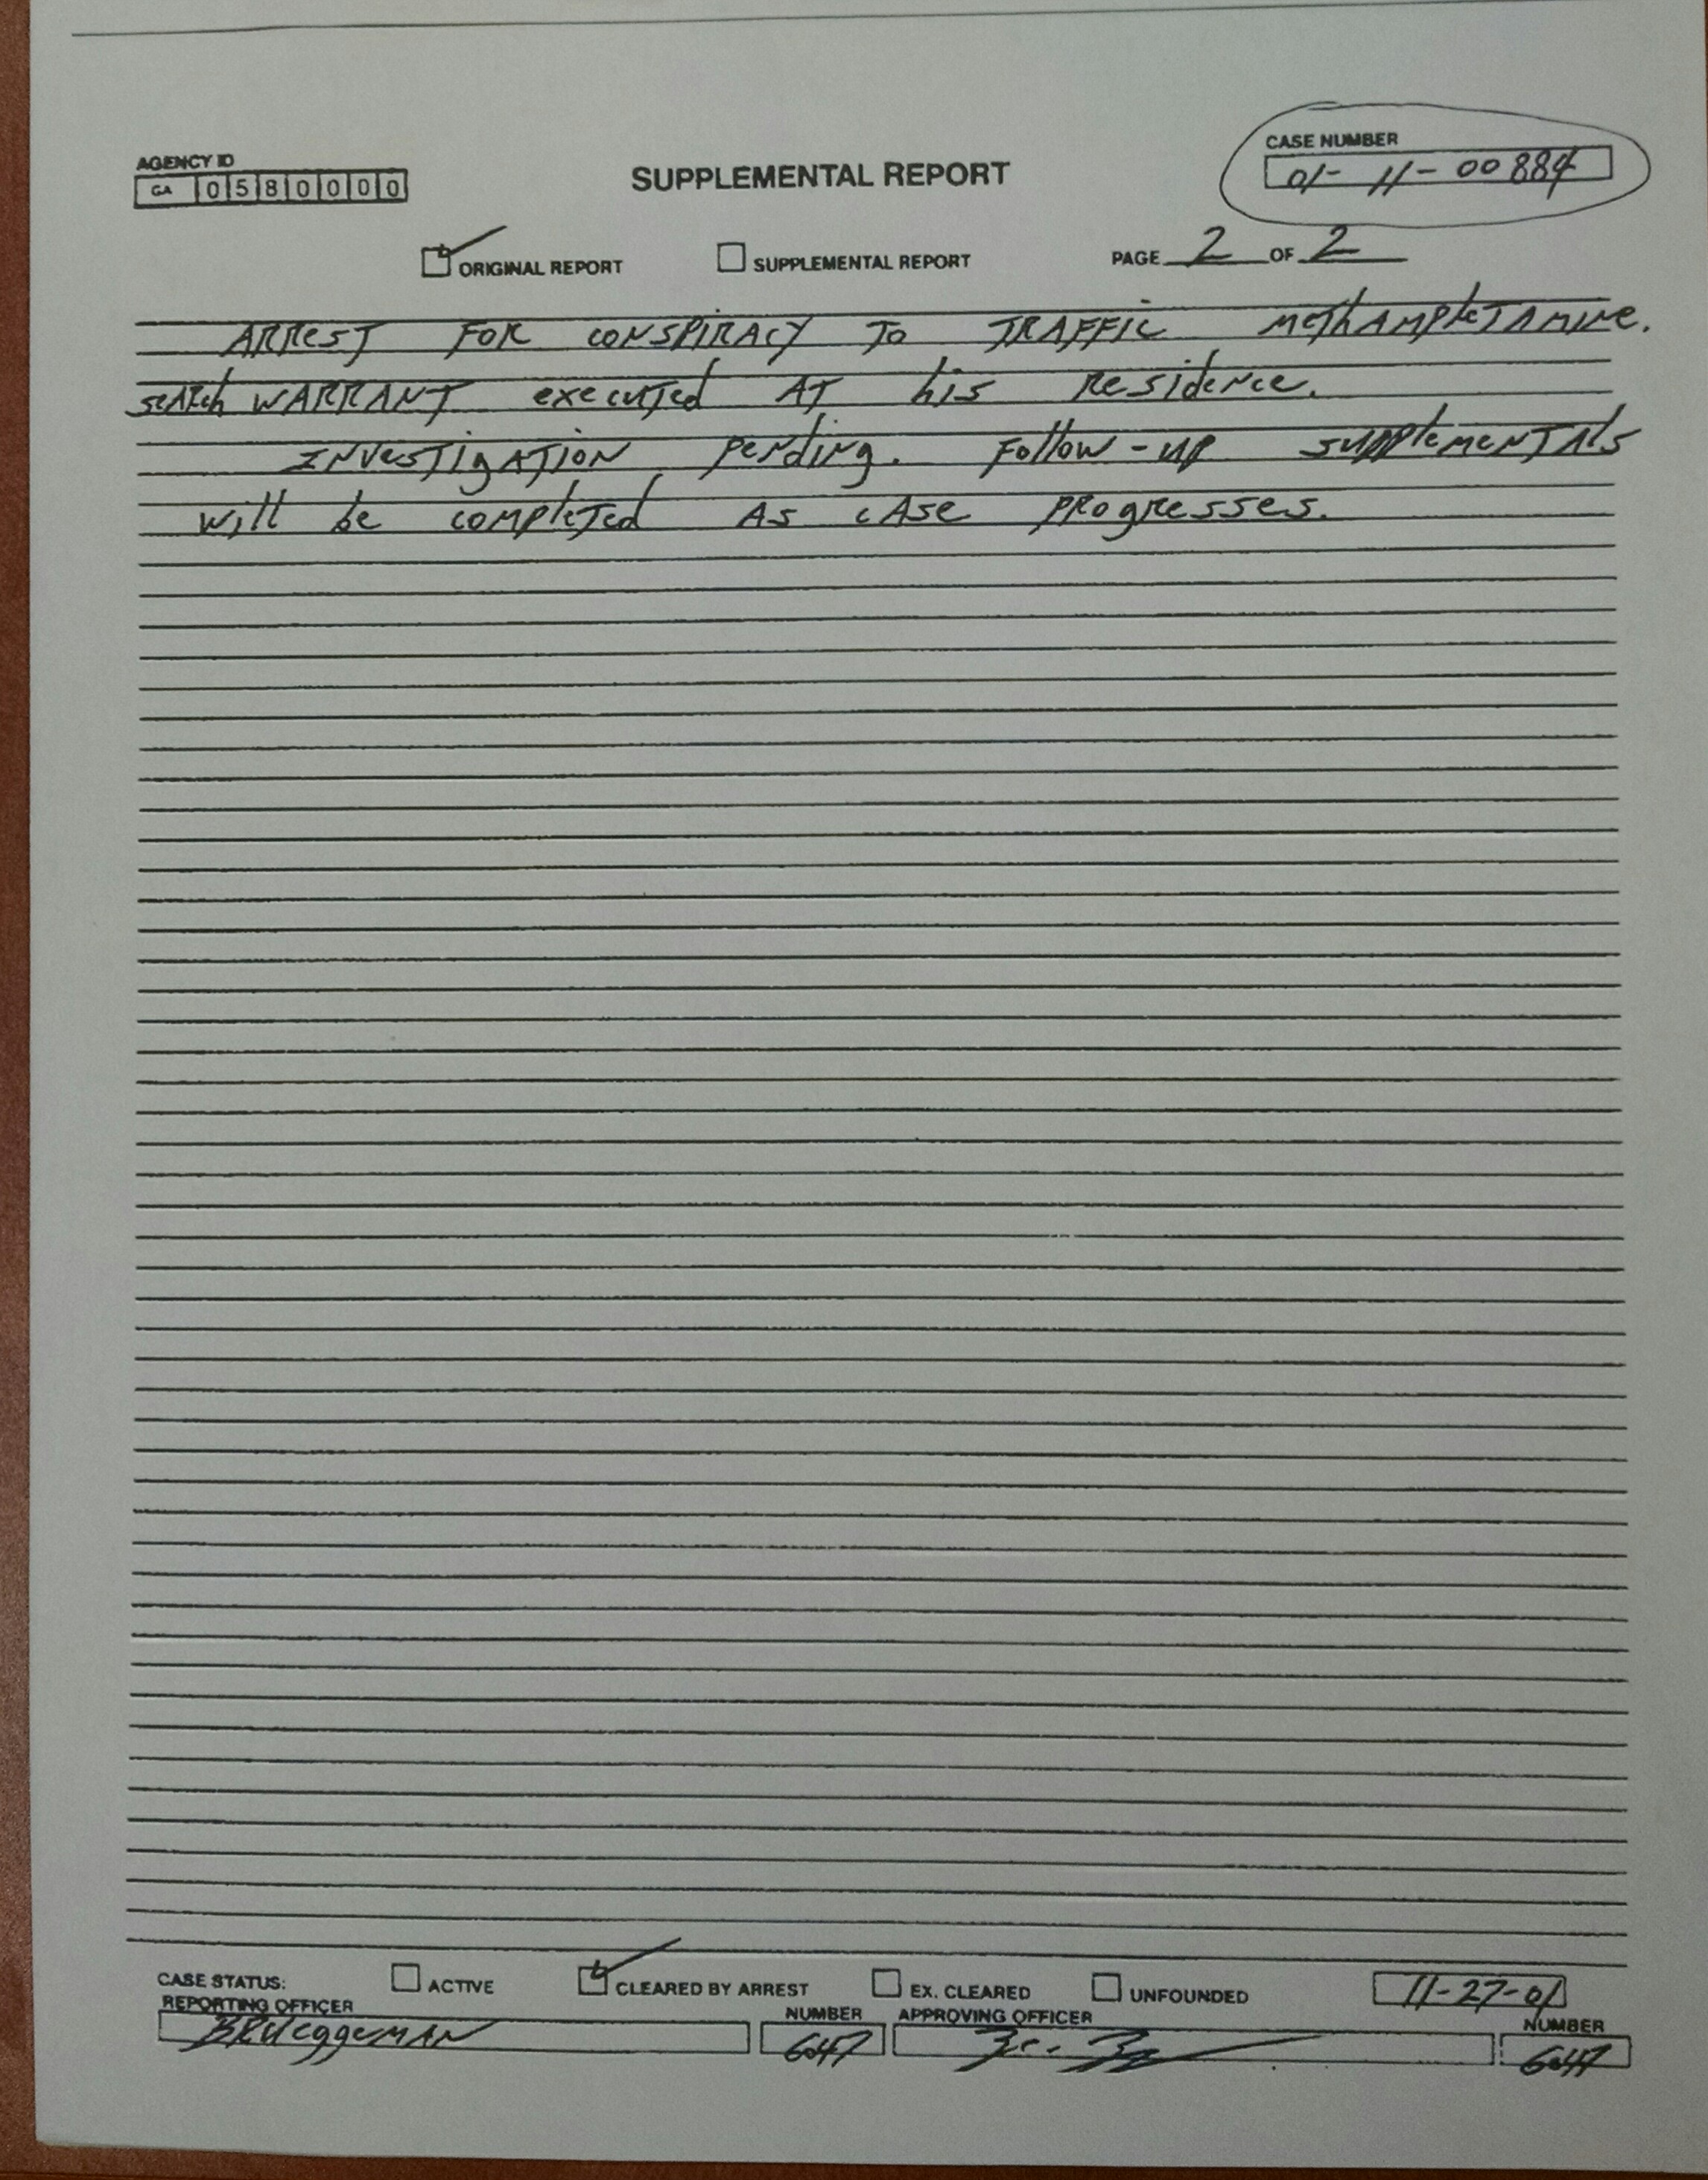 AGENCY ID
GA 0580000
SUPPLEMENTAL REPORT
CASE NUMBER
01-11-00884
ORIGINAL REPORT
SUPPLEMENTAL REPORT
PAGE 2 OF 2
ARREST FOR CONSPIRACY TO TRAFFIC METHAMPHETAMINE.
SEARCH WARRANT executed AT his Residence.
INVESTIGATION pending. Follow-up supplementals
will be completed AS CASE progresses.
CASE STATUS:
ACTIVE
CLEARED BY ARREST
EX. CLEARED
UNFOUNDED
11-27-01
REPORTING OFFICER
BRUEGGEMAN
NUMBER
6047
APPROVING OFFICER
NUMBER
6047